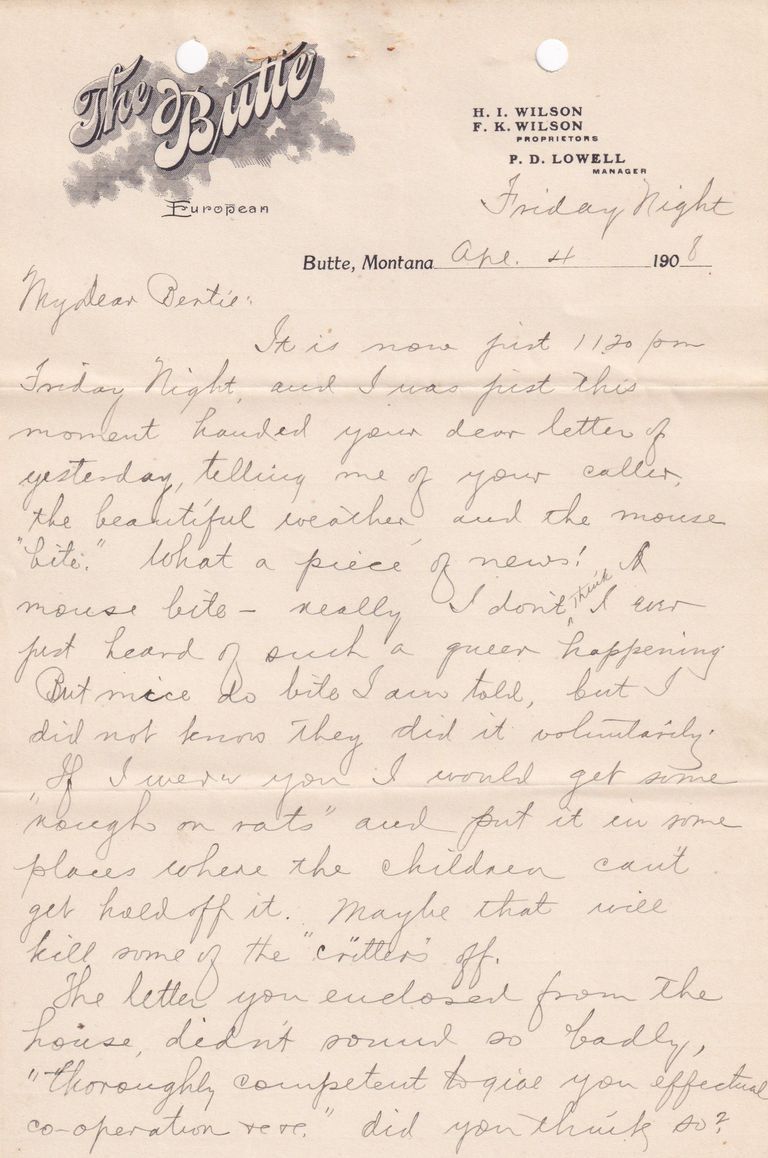 The Butte
European
H. I. WILSON
F. K. WILSON
PROPRIETORS
P. D. LOWELL
MANAGER
Friday Night
Butte, Montana Apr. 4 1908
My Dear Bertie:
It is now just 11 20 pm
Friday Night, and I was just this
moment handed your dear letter of
yesterday, telling me of your caller,
the beautiful weather and the mouse
"bite." What a piece of news! A
mouse bite – really I don't think I ever
just heard of such a queer happening
But mice do bite I am told, but I
did not know they did it voluntarily.
If I were you I would get some
"rough on rats" and put it in some
places where the children can't
get hold off it. Maybe that will
kill some of the "critters" off.
The letter you enclosed from the
house, didn't sound so badly,
"thoroughly competent to give you effectual
co-operation" did you think so?